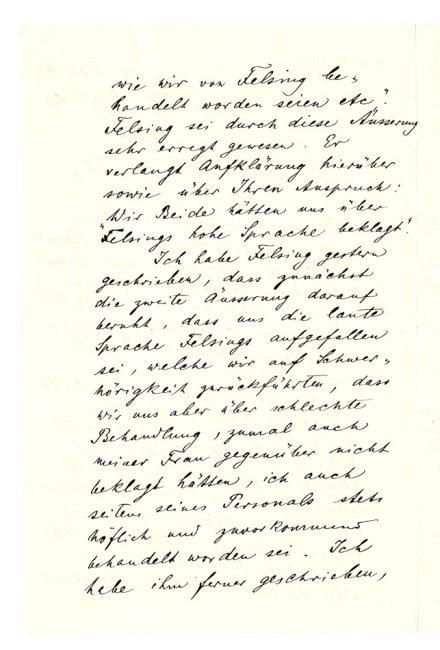 wie wir von Felsing be„
handelt worden seien etc“.
Felsing sei durch diese Äusserung
sehr erregt gewesen. Er
verlangt Aufklärung hierüber
sowie über Ihren Ausspruch:
Wir Beide hätten uns über
"Felsings hohe Sprache beklagt".
Ich habe Felsing gestern
geschrieben, dass zunächst
die zweite Äusserung darauf
beruht, dass uns die laute
Sprache Felsings aufgefallen
sei, welche wir auf Schwer„
hörigkeit zurückführten, dass
wir uns aber über schlechte
Behandlung, zumal auch
meiner Frau gegenüber nicht
beklagt hätten, ich auch
seitens seines Personals stets
höflich und zuvorkommend
behandelt worden sei. Ich
habe ihm ferner geschrieben,